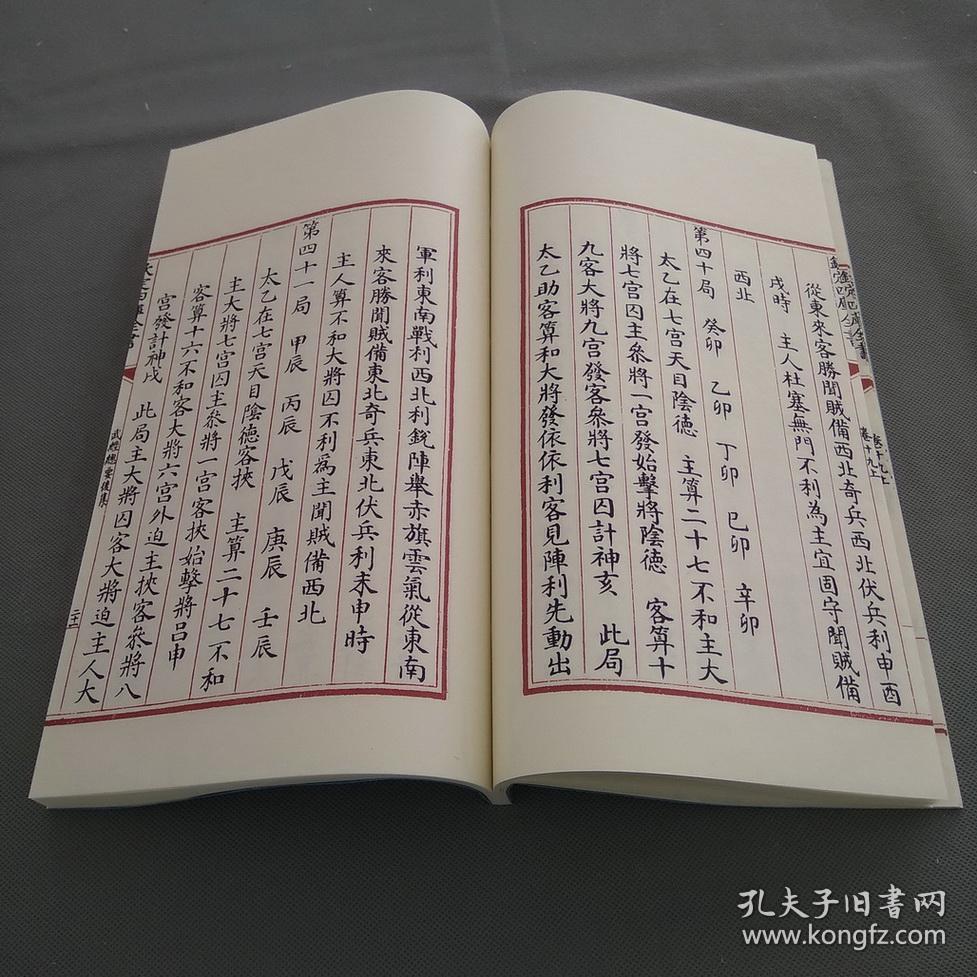 欽定四庫全書
卷十九上
從東來客勝聞賊備西北奇兵西北伏兵利申酉
戌時 主人杜塞無門不利為主宜固守聞賊備
西北
第四十局 癸卯 乙卯 丁卯 巳卯 辛卯
太乙在七宮天目陰德 主算二十七不和主大
將七宮囚主叅將一宮發始擊將陰德 客算十
九客大將九宮發客叅將七宮囚計神亥 此局
太乙助客算和大將發依依利客見陣利先動出
軍利東南戰利西北利銳陣舉赤旗雲氣從東南
來客勝聞賊備東北奇兵東北伏兵利未申時
主人算不和大將囚不利為主聞賊備西北
第四十一局 甲辰 丙辰 戊辰 庚辰 壬辰
太乙在七宮天目陰德客挾 主算二十七不和
主大將七宮囚主叅將一宮客挾始擊將呂申
客算十六不和客大將六宮外迫主挾客叅將八
宮發計神戌 此局主大將囚客大將迫主人大
武經總要後集
二十一
孔夫子旧書网
www.kongfz.com